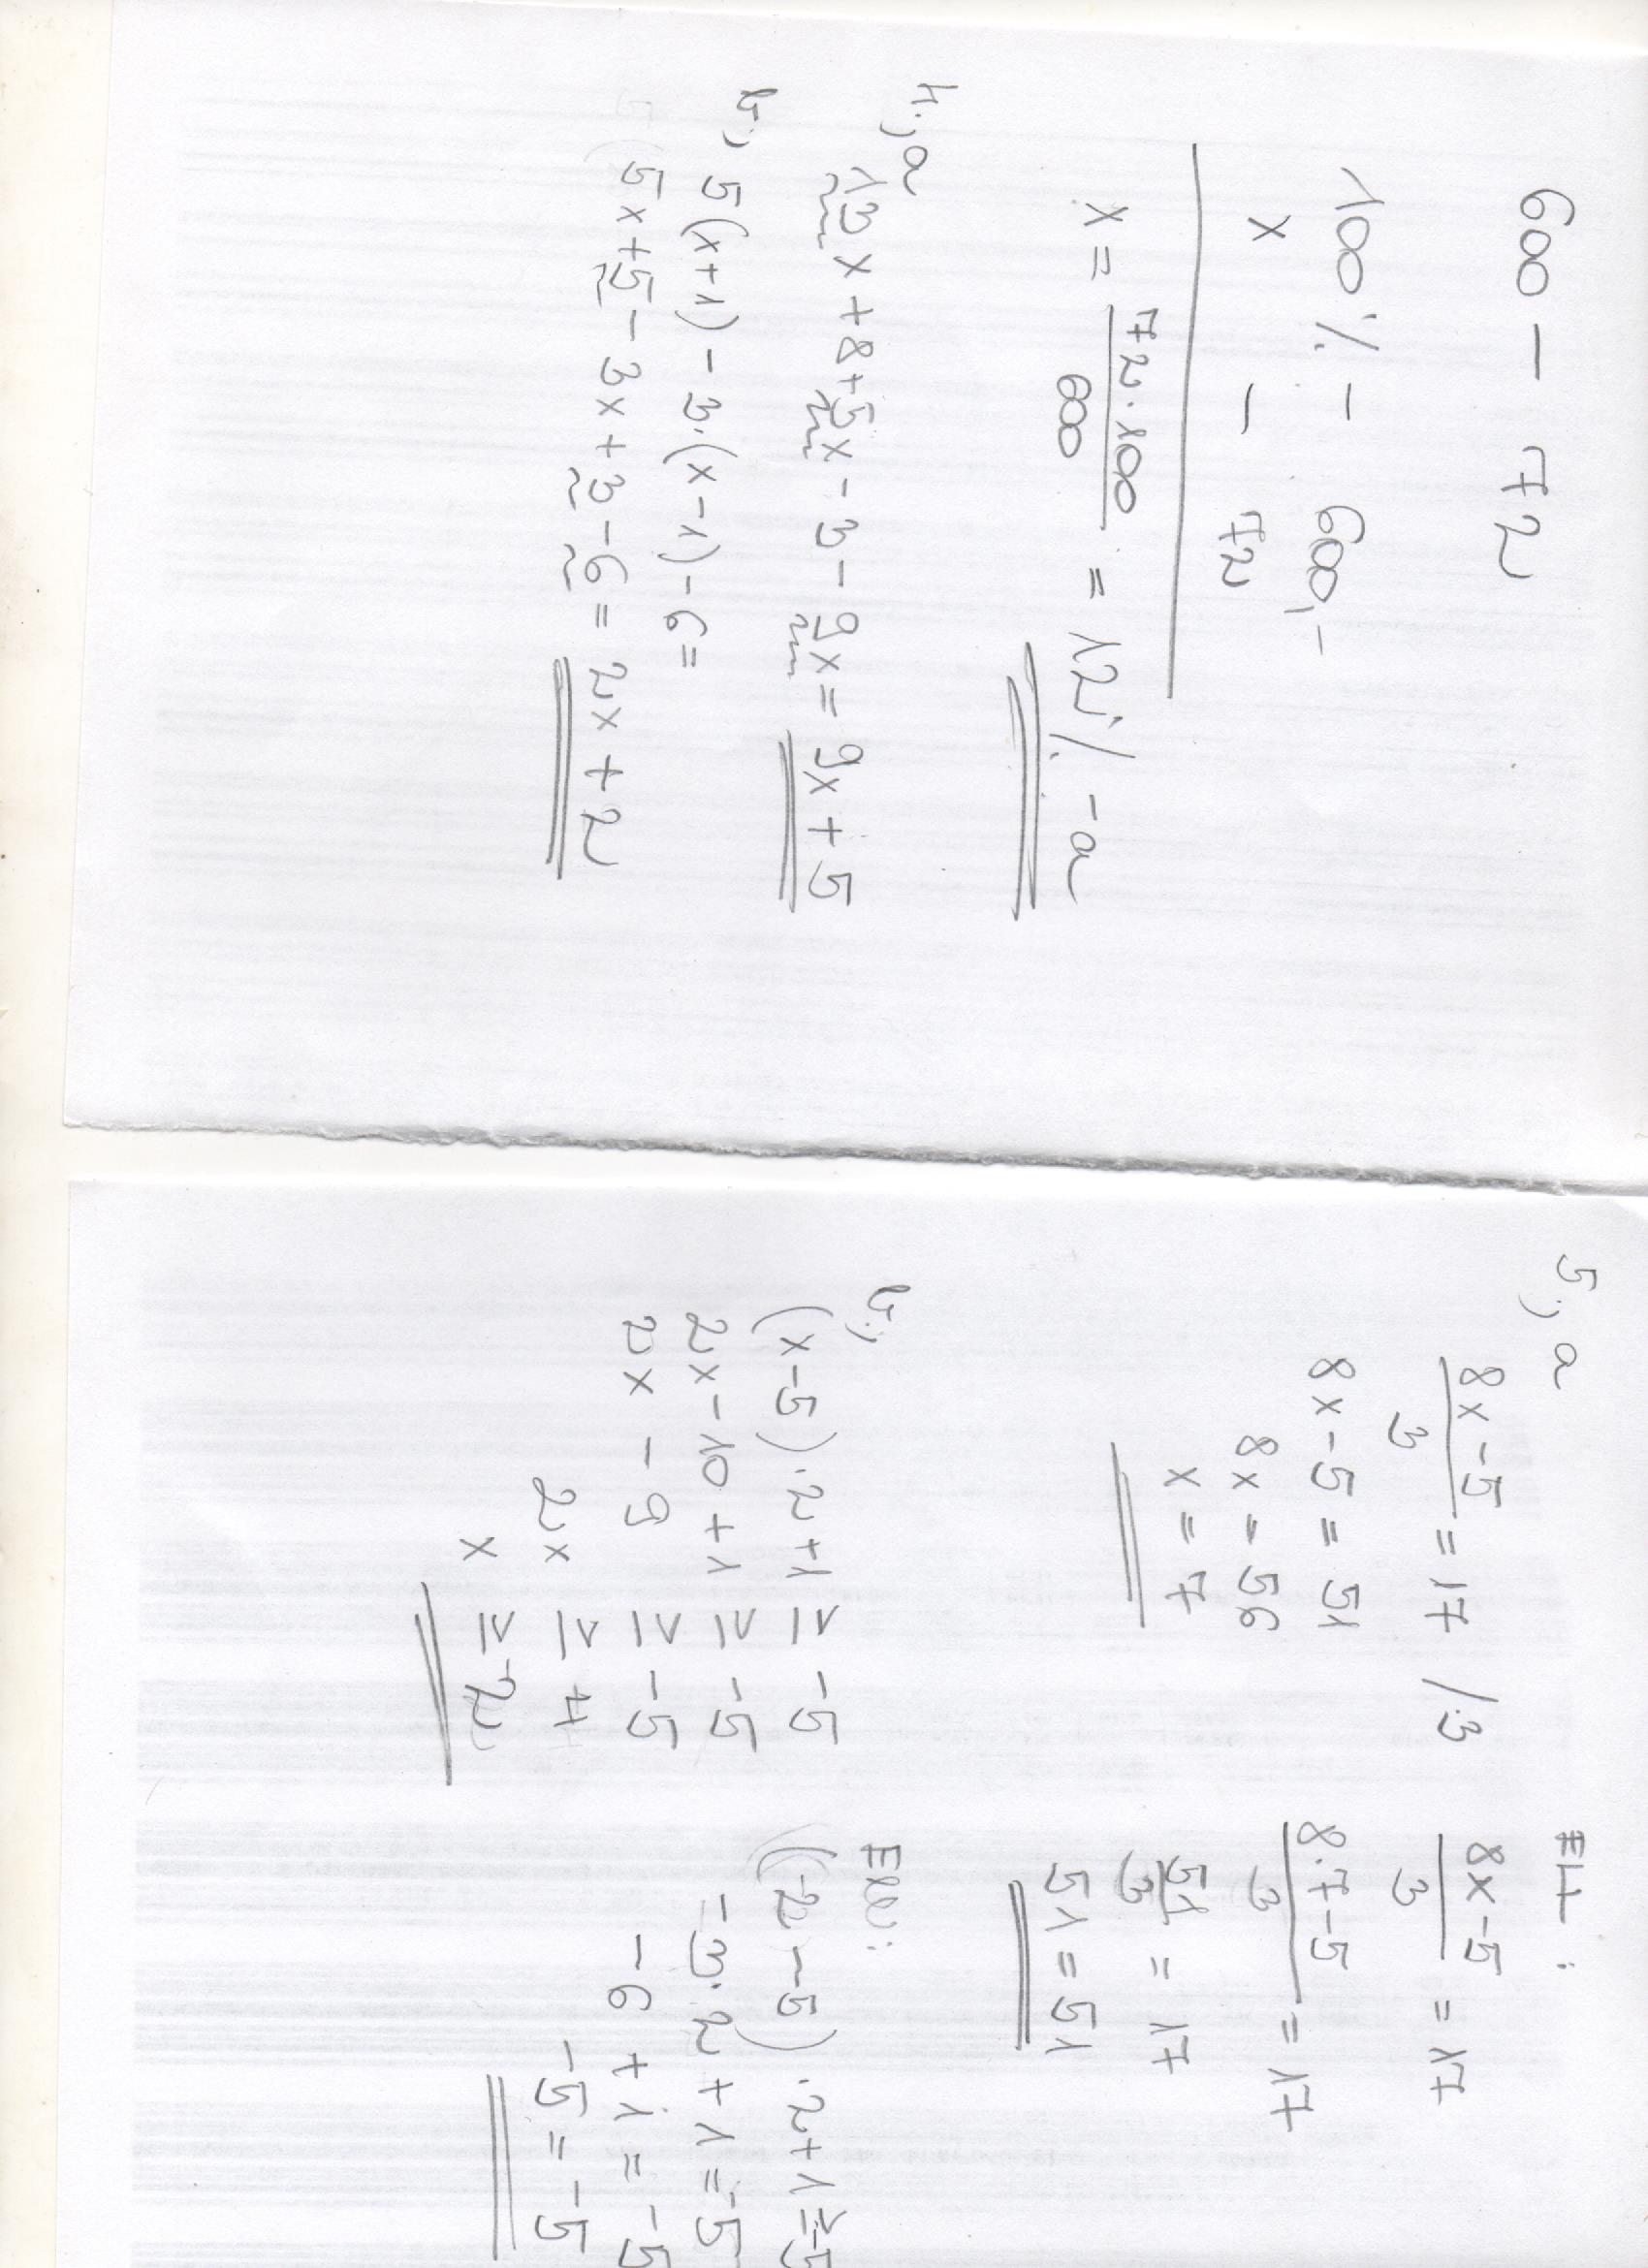 600 — 72
100% — 600,-
x — 72
x = 72·100 / 600 = 12% - a
4., a
13x + 8 + 5x - 3 - 9x = 9x + 5
b., 5(x+1) - 3·(x-1) - 6 =
5x + 5 - 3x + 3 - 6 = 2x + 2
5., a
8x-5 / 3 = 17 /·3
8x - 5 = 51
8x = 56
x = 7
Ell:
8x-5 / 3 = 17
8·7-5 / 3 = 17
51/3 = 17
51 = 51
b.,
(x-5)·2+1 ≥ -5
2x-10+1 ≥ -5
2x - 9 ≥ -5
2x ≥ +4
x ≥ -2
Ell:
(-2-5)·2+1 ≥ -5
-3·2+1 = -5
-6+1 = -5
-5 = -5